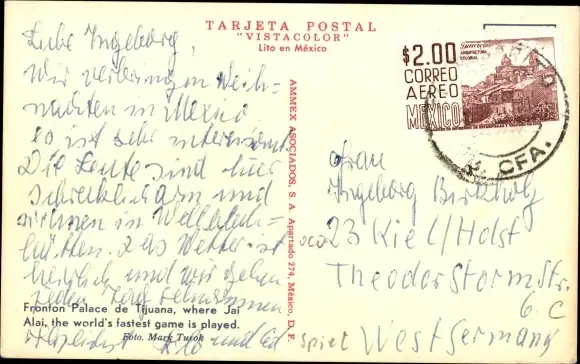 TARJETA POSTAL
"VISTACOLOR"
Lito en México
Liebe Ingeborg,
Wir verbringen Weih-
nachten in Mexico
es ist sehr interessant
Die Leute sind hier
schrecklich arm und
wohnen in Wellblech-
hütten. Das Wetter ist
herrlich und wir gehen
jeden Tag schwimmen
und Ed
Fronton Palace de Tijuana, where Jai
Alai, the world's fastest game is played.
Foto. Mark Turok
AMMEX ASOCIADOS, S. A. Apartado 274, México, D. F.
$2.00
CORREO
AEREO
MEXICO
ARQUITECTURA
COLONIAL
CFA.
Frau
Ingeborg Birkholz
23 Kiel/Holst
Theodor Storm Str.
6 c
West Germany